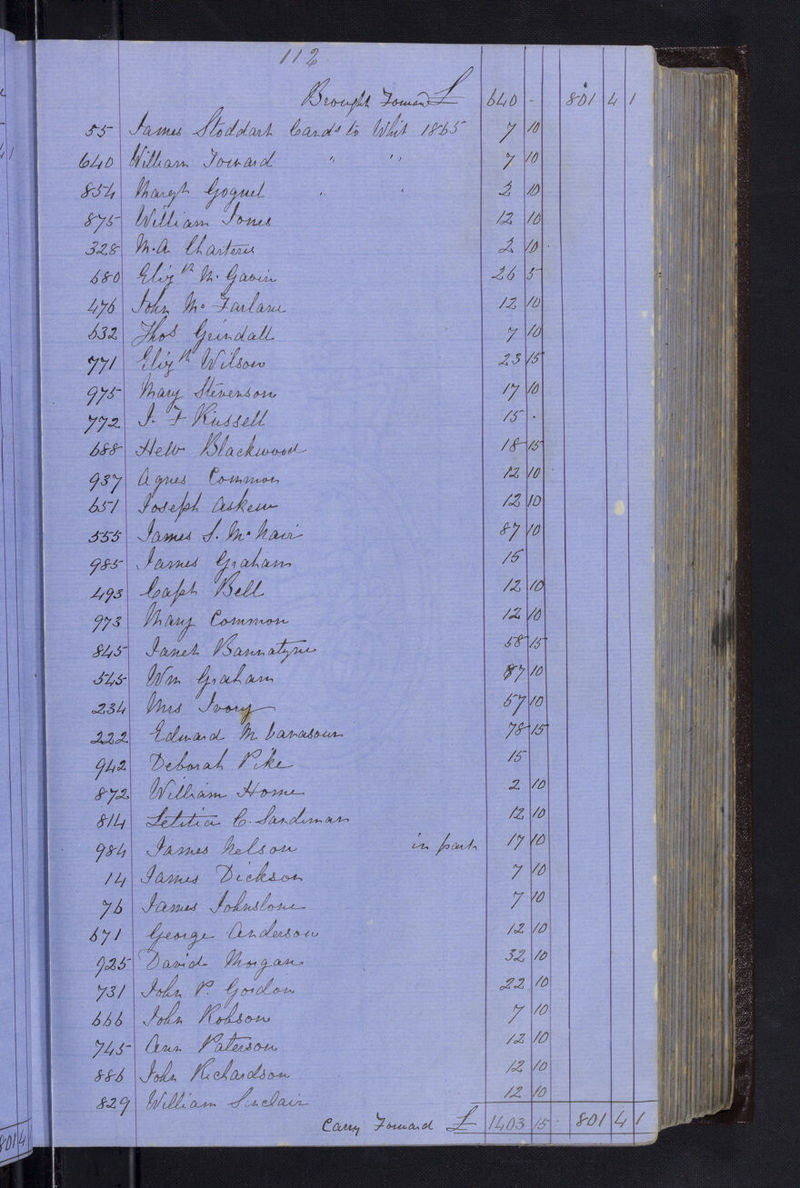 112
Brought Forward £ 640 - 801 4 1
55 James Stoddart Cands to Whit 1865 7 10
640 William Forward " " 7 10
854 Margt Goguel " " 2 10
875 William Jones 12 10
328 M. A Charteris 2 10
680 Elizth M. Gavin 26 5
476 John Mc Farlane 12 10
632 Thos Grindall 7 10
771 Elizth Wilson 23 15
975 Mary Stevenson 17 10
772 J. F Russell 15 -
688 Helen Blackwood 18 15
937 Agnes Common 12 10
651 Joseph Askew 12 10
555 James S. Mc Nair 87 10
985 James Graham 15
493 Capt Bell 12 10
973 Mary Common 12 10
845 Janet Bannatyne 58 15
545 Wm Graham 87 10
234 Mrs Ivory 57 10
222 Edward M Vavasour 78 15
942 Deborah Pike 15
872 William Home 2 10
814 Letitia C. Sandeman 12 10
984 James Nelson in part 17 10
14 James Dickson 7 10
76 James Johnstone 7 10
671 George Anderson 12 10
925 David Morgan 32 10
731 John P. Gordon 22 10
666 John Robson 7 10
745 Ann Paterson 12 10
886 John Richardson 12 10
829 William Sinclair 12 10
Carry Forward £ 1403 15 - 801 4 1
801 4